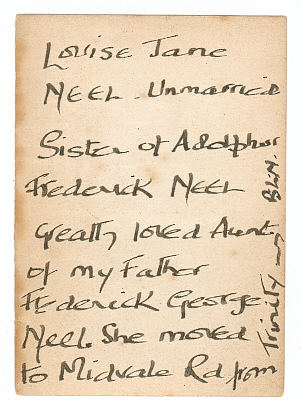 Louise Jane
NEEL. Unmarried
Sister of Adolphus
Frederick NEEL
greatly loved Aunt
of my Father
Frederick George
Neel. She moved
to Midvale Rd from
Trinity